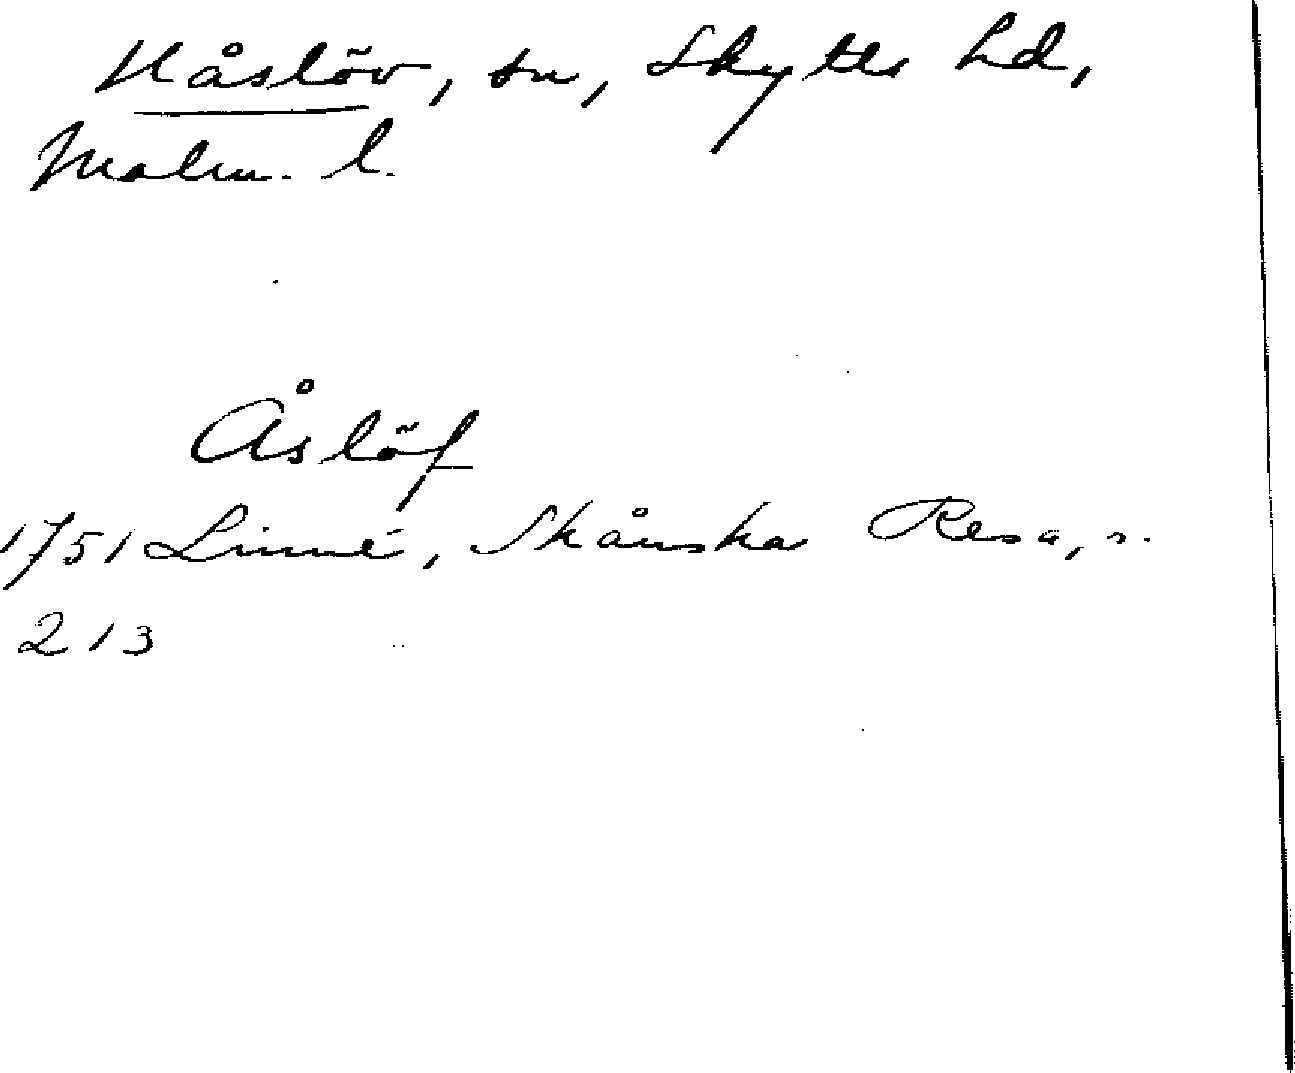 Håslöv, sn, Skytts hd,
Malm. l.
Åslöf
1751 Linné, Skånska Resa, s.
213